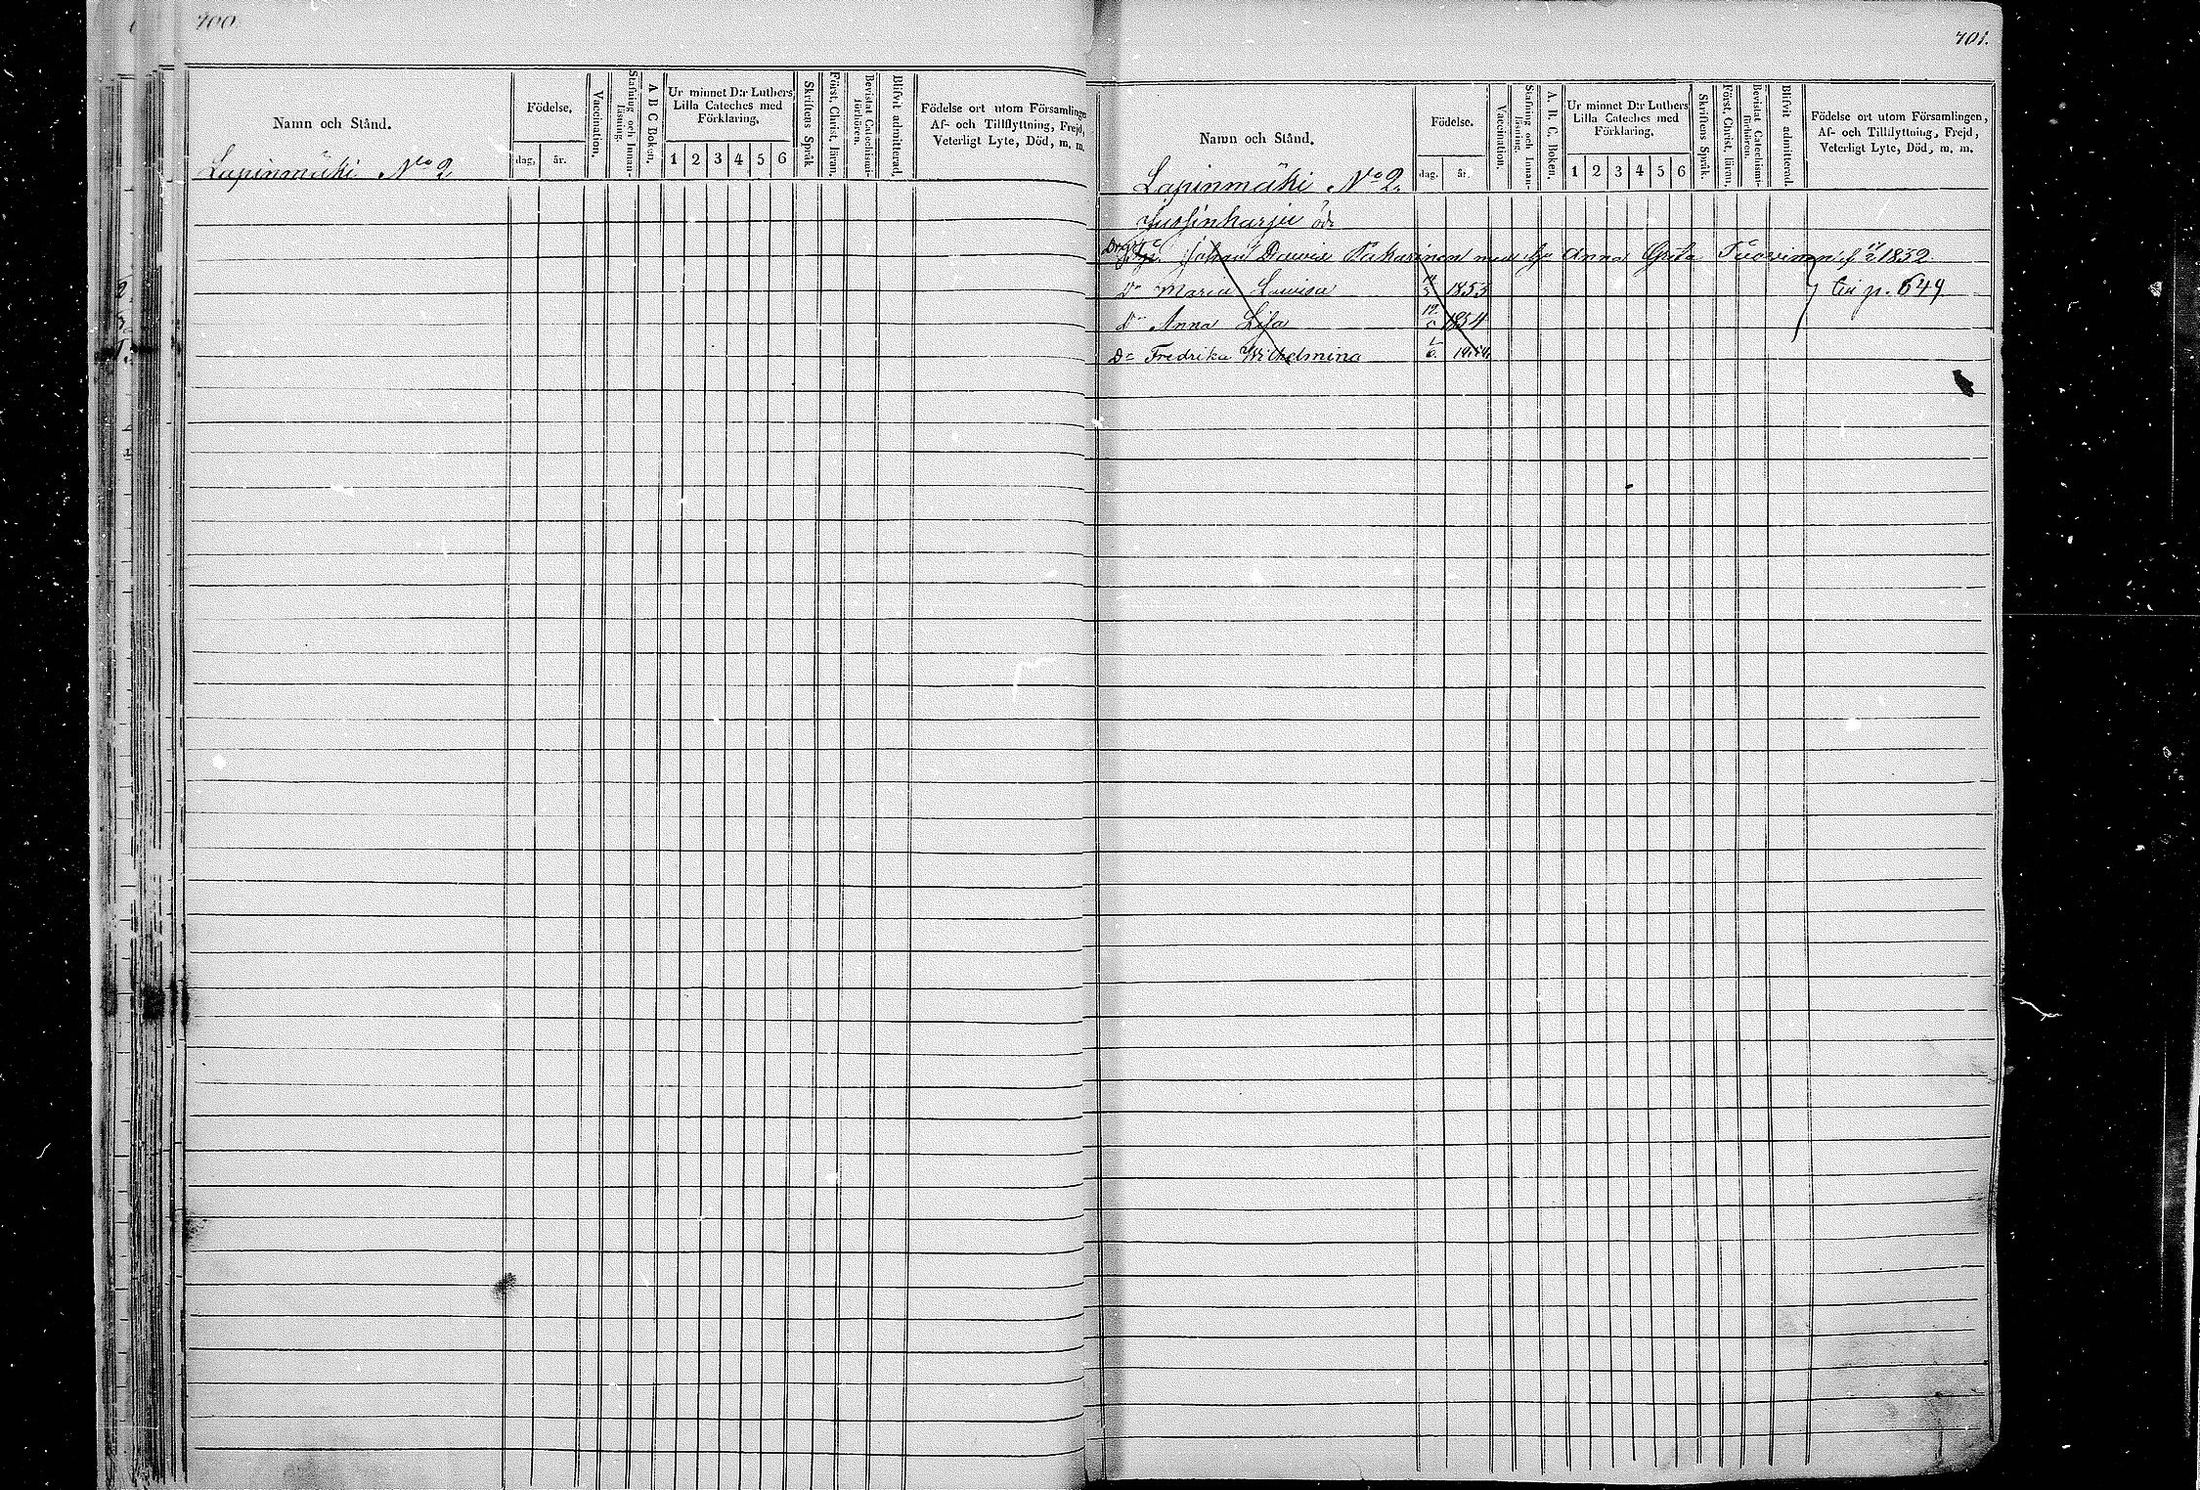 700.
Namn och Stånd.
Födelse.
dag.
år.
Vaccination.
Stafning och Innan-läsning.
A B C Boken.
Ur minnet D:r Luthers
Lilla Cateches med
Förklaring.
1 2 3 4 5 6
Skriftens Språk
Först. Christ. läran.
Bevistat Catechismi-förhören.
Blifvit admitterad.
Födelse ort utom Församlingen
Af- och Tillflyttning, Frejd,
Veterligt Lyte, Död, m. m.
Lapinmäki No 2
701.
Namn och Stånd.
Födelse.
dag.
år.
Vaccination.
Stafning och Innan-läsning.
A. B. C. Boken.
Ur minnet D:r Luthers
Lilla Cateches med
Förklaring.
1 2 3 4 5 6
Skriftens Språk.
Först. Christ. läran.
Bevistat Catechismi-förhören.
Blifvit admitterad.
Födelse ort utom Församlingen,
Af- och Tillflyttning, Frejd,
Veterligt Lyte, Död, m. m.
Lapinmäki No 2.
Jussinharju öde
Johan Pakarinen med Anna Greta Tuovinen 1852
Dr Maria Lovisa 1853 p. 649
Dr Anna Lisa 1854
Dr Fredrika Wilhelmina